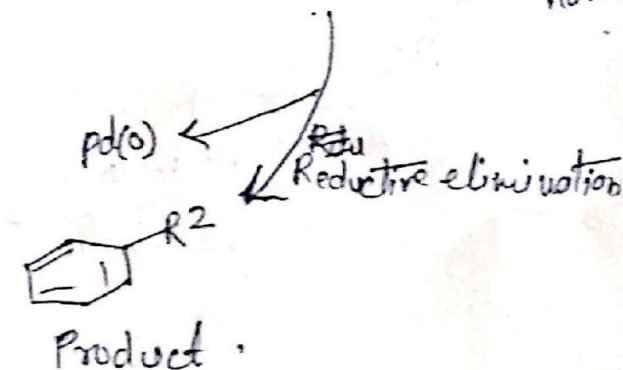 pd(0)
Reductive elimination
R2
Product .